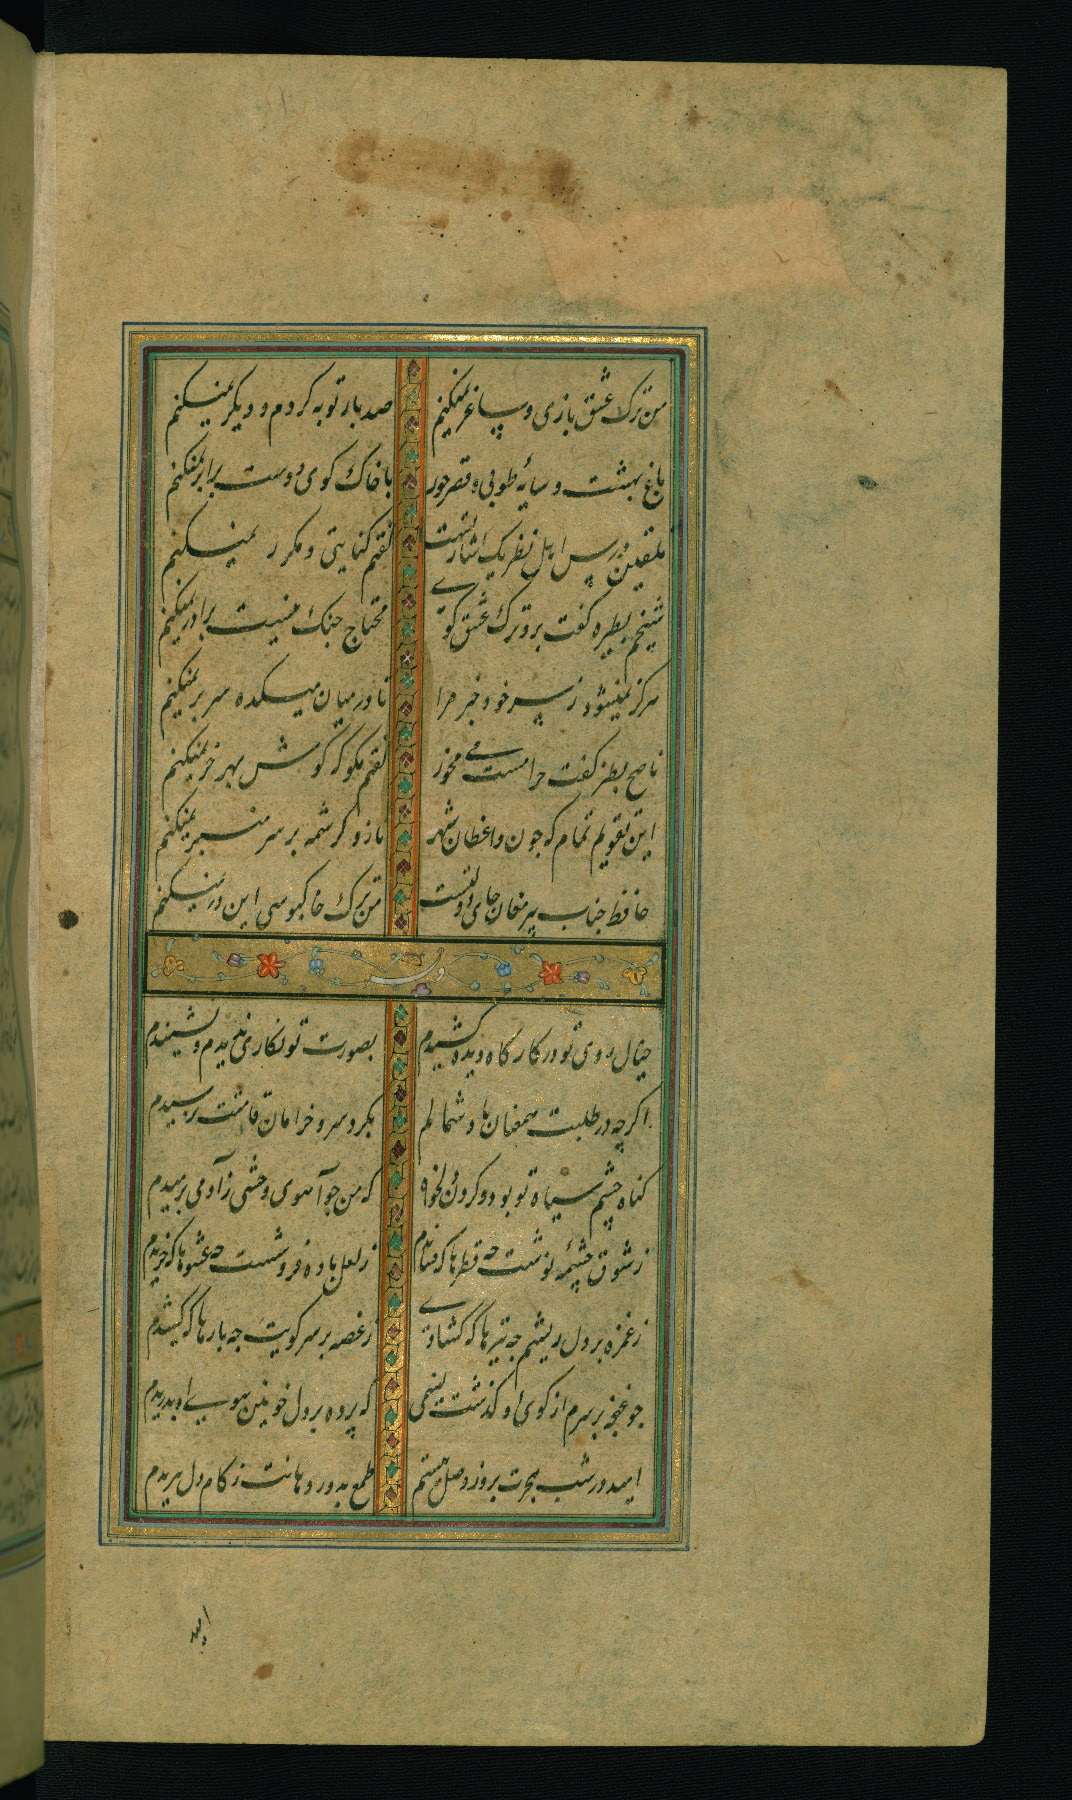 من ترک عشق بازی و ساغر نمیکنم
صد بار توبه کردم و دیکر نمیکنم
باغ بهشت و سایهٔ طوبی و قصر حور
با خاک کوی دوست برابر نمیکنم
تلقین درس اهل نظر یک اشارتست
کفتم کنایتی و مکرر نمیکنم
شیخم بطیره کفت برو ترک عشق کوی
محتاج جنک نیست برادر نمیکنم
هرکز نمیشود ز سر خود خبر مرا
تا در میان میکده سر بر نمیکنم
ناصح بطنز کفت حرامست می مخور
کفتم مکو که کوش بهر خر نمیکنم
این تقویم تمام که چون واعظان شهر
ناز و کرشمه بر سر منبر نمیکنم
حافظ جناب پیر مغان جای دولتست
من ترک خاکبوسی این در نمیکنم
وله
خیال روی تو در کارکاه دیده کشیدم
بصورت تو نکاری ندیدم و نشنیدم
اکرچه در طلبت همعنان باد شمالم
بکرد سرو خرامان قامتت نرسیدم
کناه چشم سیاه تو بود و کردن دلخواه
که من چو آهوی وحشی ز آدمی برمیدم
ز شوق چشمهٔ نوشت چه قطرها که فشاندم
ز لعل باده فروشت چه عشوها که خریدم
ز غمزه بر دل ریشم چه تیرها که کشادی
ز غصه بر سر کویت چه بارها که کشیدم
چو غنچه بر سرم از کوی او کذشت نسیمی
که پرده بر دل خونین ببوی او بدریدم
امید در شب هجرت بروز وصل نبستم
طمع بدور دهانت ز کام دل ببریدم